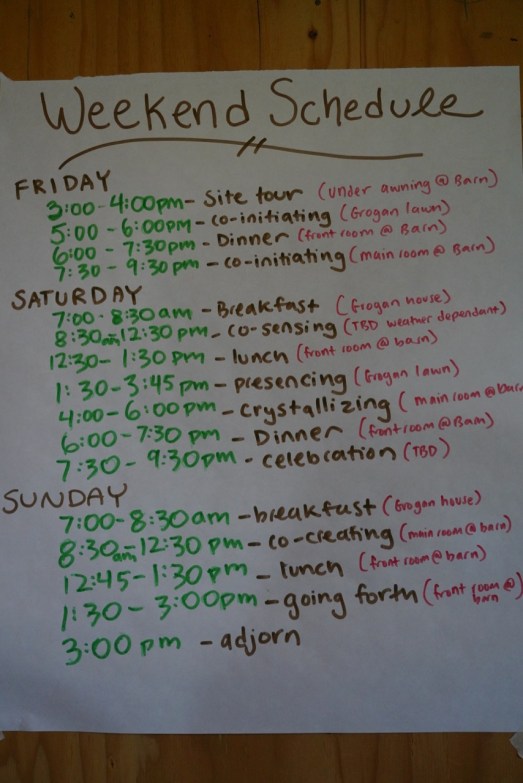 Weekend Schedule
FRIDAY
3:00-4:00pm- Site tour (under awning @ Barn)
5:00 - 6:00pm - co-initiating (Grogan lawn)
6:00 - 7:30pm - Dinner (front room @ Barn)
7:30 - 9:30pm - co-initiating (main room @ Barn)
SATURDAY
7:00- 8:30am - Breakfast (Grogan house)
8:30am-12:30pm- co-sensing (TBD weather dependant)
12:30- 1:30 pm - lunch (front room @ barn)
1:30-3:45pm - presencing (Grogan lawn)
4:00-6:00pm - crystallizing (main room @ barn
6:00-7:30pm - Dinner (front room @ Barn)
7:30 - 9:30pm - celebration (TBD)
SUNDAY
7:00-8:30am - breakfast (Grogan house)
8:30am-12:30pm - co-creating (main room @ barn)
12:45-1:30pm - lunch (front room @ barn)
1:30-3:00pm - going forth (front room @ barn)
3:00 pm - adjorn